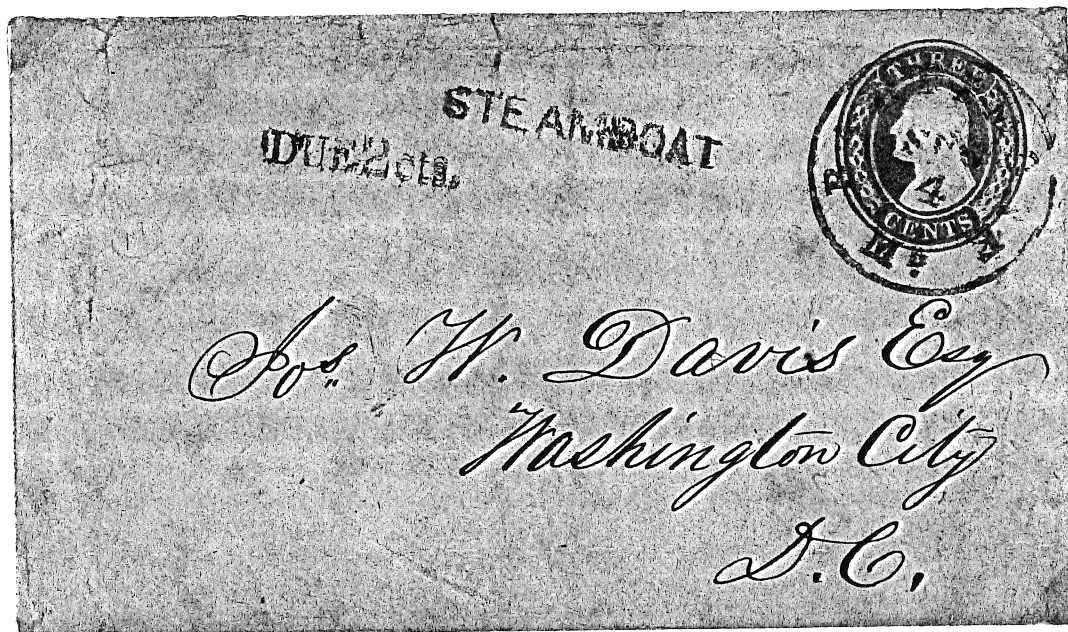 STEAMBOAT
DUE 2 cts.
THREE
CENTS
4
Md.
Jos. W. Davis Esq
Washington City
D.C.